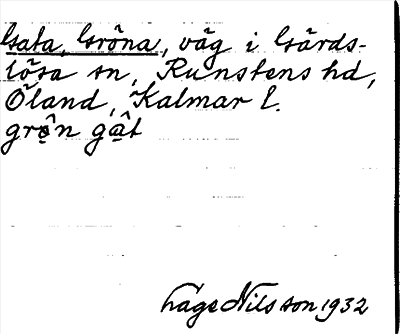 Gata, Gröna, väg i Gärds-
lösa sn, Runstens hd,
Öland, Kalmar l.
grø̂n gật
Åge Nilsson 1932